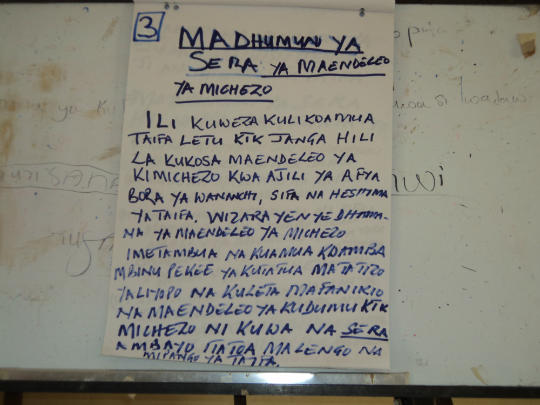 3
MADHUMUNI YA
SERA YA MAENDELEO
YA MICHEZO
ILI KUWEZA KULIKOAMUA
TAIFA LETU KTK JANGA HILI
LA KUKOSA MAENDELEO YA
KIMICHEZO KWA AJILI YA AFYA
BORA YA WANANCHI, SIFA NA HESHIMA
YA TAIFA. WIZARA YENYE DHAMA-
NA YA MAENDELEO YA MICHEZO
IMETAMBUA NA KUAMUA KWAMBA
MBINU PEKEE YA KUTATUA MATATIZO
YALIYOPO NA KULETA MAFANIKIO
NA MAENDELEO YA KUDUMU KTK
MICHEZO NI KUWA NA SERA
AMBAYO ITATOA MALENGO NA
MIPANGO YA TAIFA.